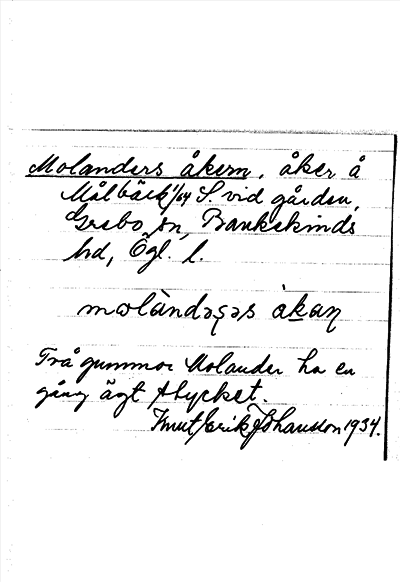 Molanders åkern, åker å
Målbäck 1/64 S. vid gården,
Grebo sn, Bankekinds
hd, Ögl. l.
molàndəṣəs àkaṇ
Två gummor Molander ha en
gång ägt stycket.
Knut Erik Johansson 1934.